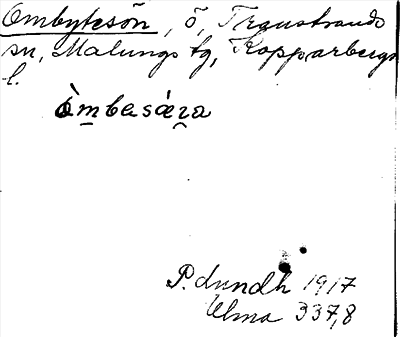 Ombytesön, ö, Transtrands
sn, Malungs tg, Kopparbergs
l.
òmbesára
P. Lundh 1917
Ulma 337,8